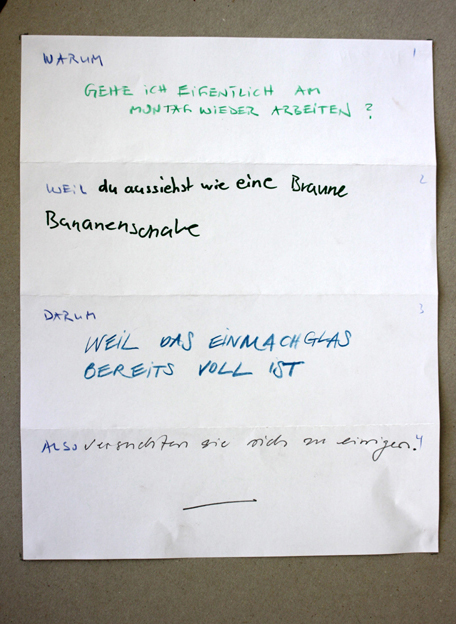 WARUM 1
GEHE ICH EIGENTLICH AM
MONTAG WIEDER ARBEITEN ?
WEIL du aussiehst wie eine Braune 2
Bananenschale
DARUM 3
WEIL DAS EINMACHGLAS
BEREITS VOLL IST
ALSO versuchten sie sich zu einigen. 4